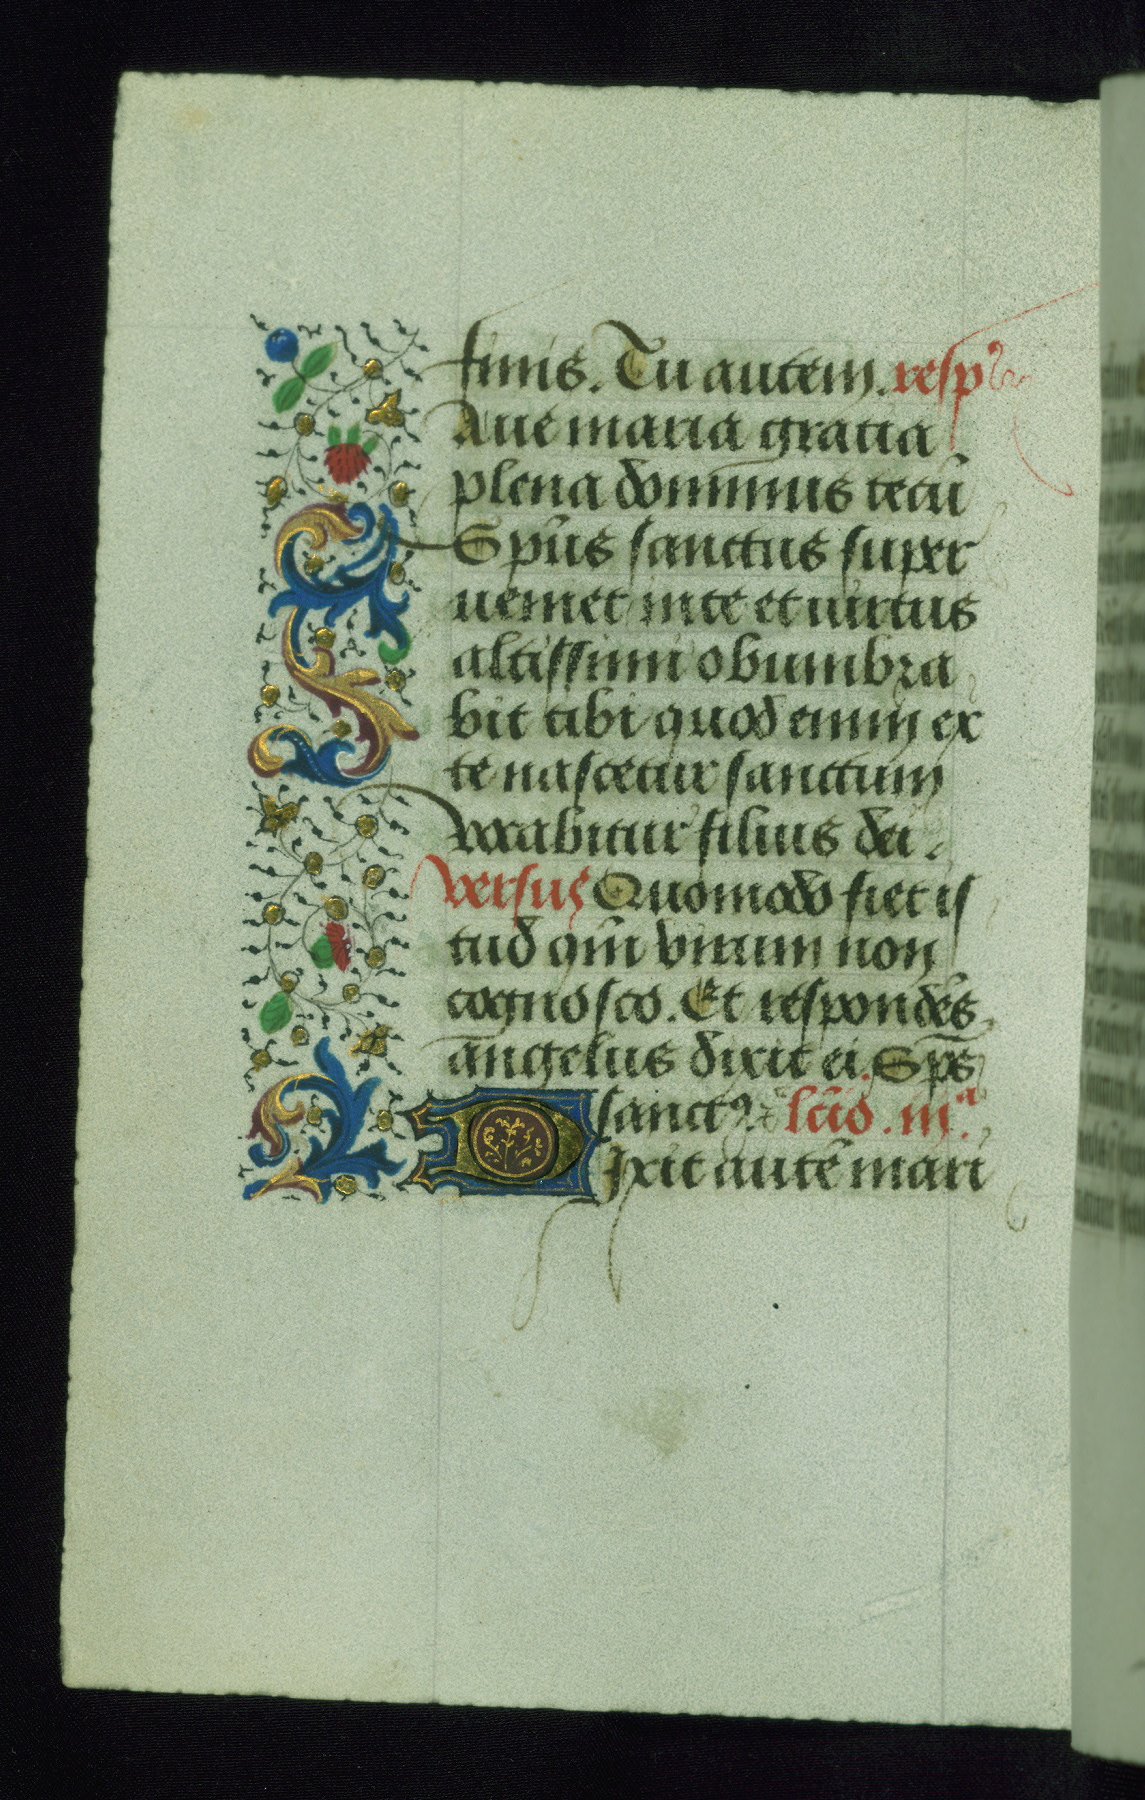 finis. Tu autem. resp̄
Aue maria gratia
plena dominus tecū
Spūs sanctus super
ueniet in te et uirtus
altissimi obumbra
bit tibi quod enim ex
te nascetur sanctum
vocabitur filius dei.
versus Quomodo fiet is
tud qm̄ virum non
cognosco. Et respondēs
angelus dixit ei. Spūs
sanctꝯ. lc̄io. iijᵃ.
Dixit autē mari